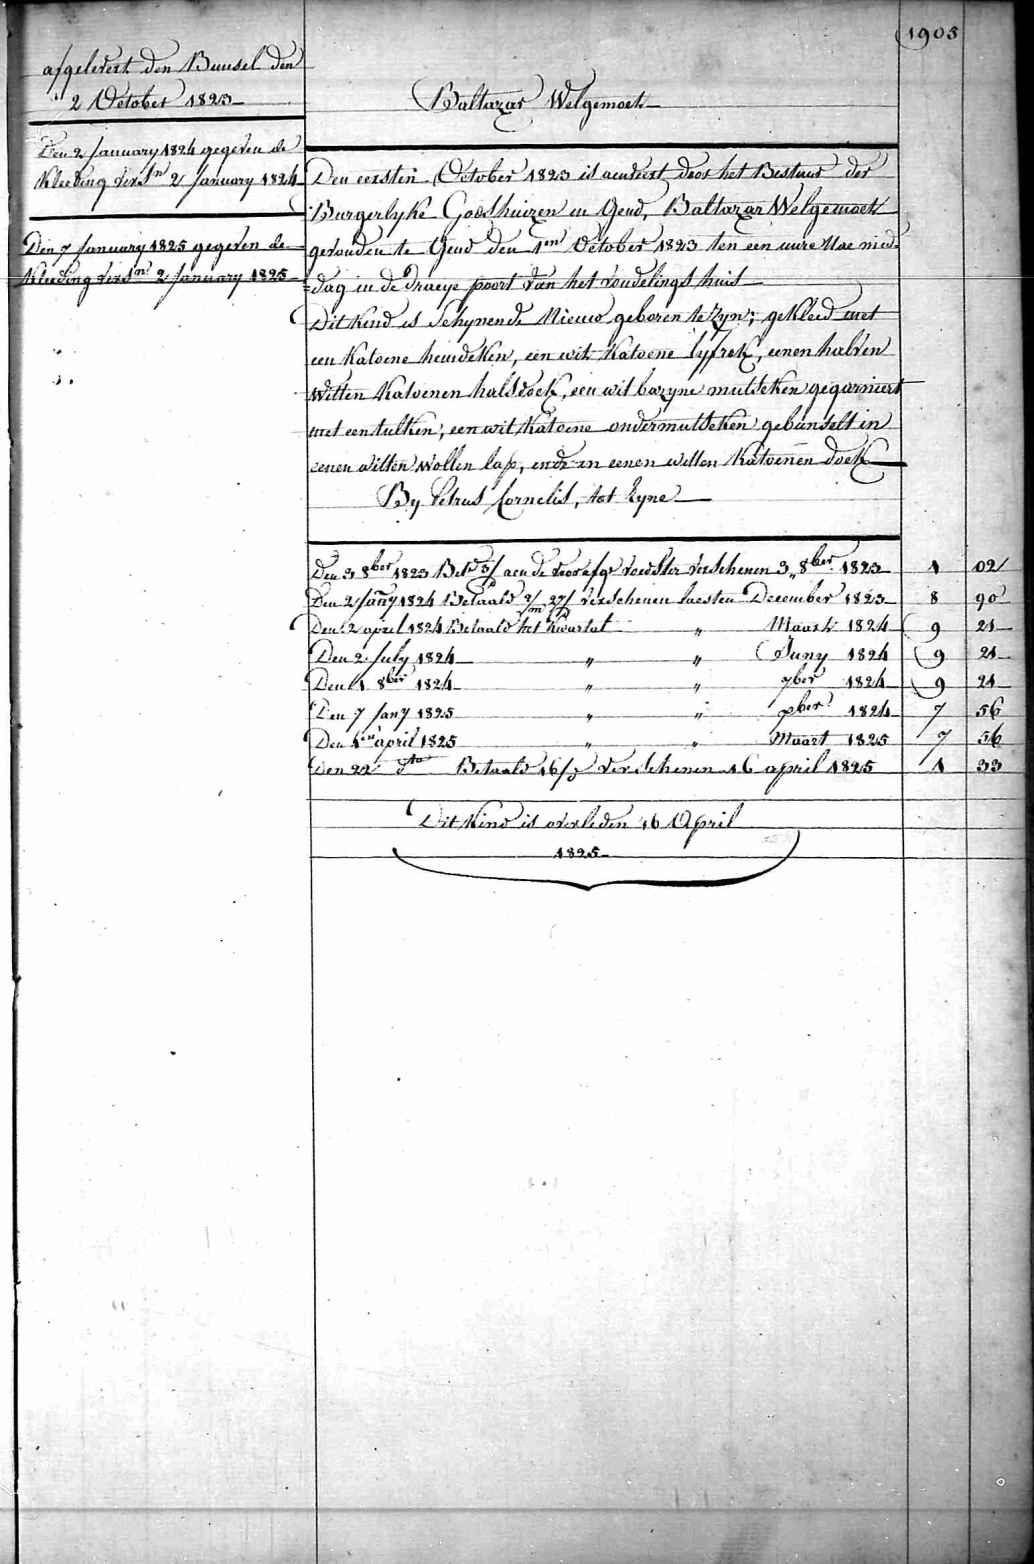 1903
afgelevert den Bunsel den
2 October 1823
Den 2 January 1824 gegeven de
Kleeding versn 2 January 1824
Den 7 January 1825 gegeven de
Kleeding versn 2 January 1825
Baltazar Welgemoet
Den eersten October 1823 is aenveert door het Bestuur der
Burgerlyke Godshuizen in Gend, Baltazar Welgemoet
gevonden te Gend den 1en October 1823 ten een uure Nae mid-
=dag in de Draeye poort van het vondelings huis
Dit Kind is Schynende Nieuw geboren te Zyn; gekleed met
een Katoene hemdeken, een wit Katoene lyfrok, eenen halven
Witten Katoenen halsdoek, een wit bazyne mutseken gegarniert
met een tulken, een wit Katoene ondermutseken gebunselt in
eenen witten Wollen lap, ende in eenen witten Katoenen doek
By Petrus Cornelis, tot Zyne
Den 3 8ber 1823 Betd 3/ aen de voorafge voedster verschenen 3 8ber 1823 1 02
Den 2 Jany 1824 Betaald 2/m 27/ verschenen laesten December 1823 8 90
Den 2 april 1824 Betaald het Kwartal „ Maart 1824 9 21
Den 2 July 1824 „ „ Juny 1824 9 21
Den 1 8ber 1824 „ „ 7ber 1824 9 21
Den 7 Jany 1825 „ „ xber 1824 7 56
Den 1en april 1825 „ „ Maart 1825 7 56
Den 22 dto Betaald 16/ verschenen 16 april 1825 1 33
Dit Kind is overleden 16 April
1825